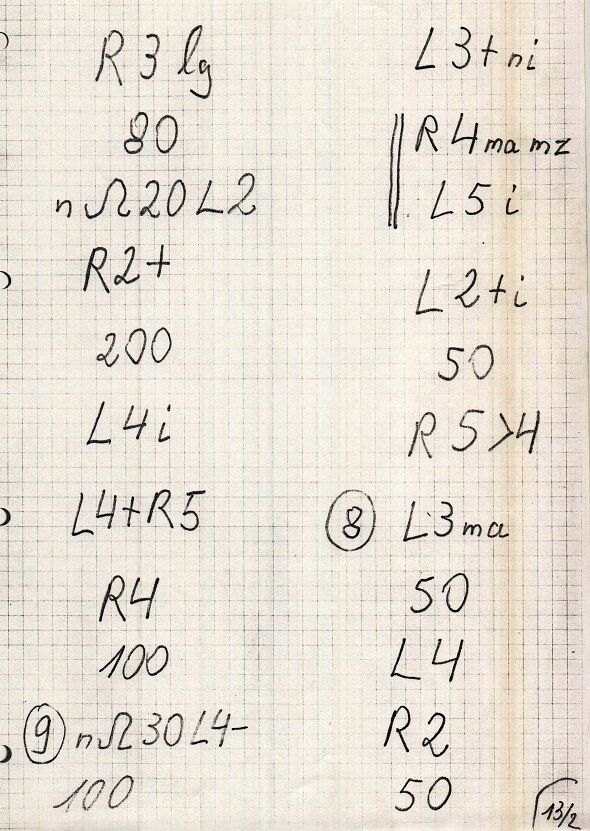 R3 lg
80
nΩ20 L2
R2+
200
L4i
L4+R5
R4
100
9 nΩ30L4-
100
L3+ni
R4 ma mz
L5i
L2+i
50
R5>4
8 L3ma
50
L4
R2
50
13/2